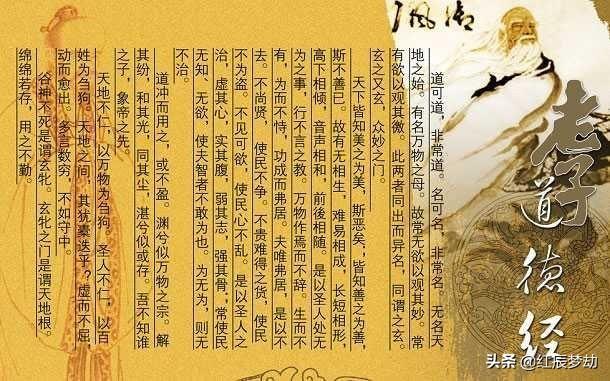 御風
老子
道德经
道可道，非常道。名可名，非常名。无名天
地之始。有名万物之母。故常无欲以观其妙。常
有欲以观其微。此两者同出而异名，同谓之玄。
玄之又玄，众妙之门。
天下皆知美之为美，斯恶矣；皆知善之为善，
斯不善已。故有无相生，难易相成，长短相形，
高下相倾，音声相和，前後相随。是以圣人处无
为之事，行不言之教。万物作焉而不辞。生而不
有，为而不恃，功成而弗居。夫唯弗居，是以不
去。不尚贤，使民不争。不贵难得之货，使民
不为盗。不见可欲，使民心不乱。是以圣人之
治，虚其心，实其腹，弱其志，强其骨；常使民
无知、无欲，使夫智者不敢为也。为无为，则无
不治。
道冲而用之，或不盈。渊兮似万物之宗。解
其纷，和其光，同其尘，湛兮似或存。吾不知谁
之子，象帝之先。
天地不仁，以万物为刍狗。圣人不仁，以百
姓为刍狗。天地之间，其犹橐迭乎？虚而不屈，
动而愈出。多言数穷，不如守中。
谷神不死是谓玄牝。玄牝之门是谓天地根。
绵绵若存，用之不勤
头条 @红辰梦劫